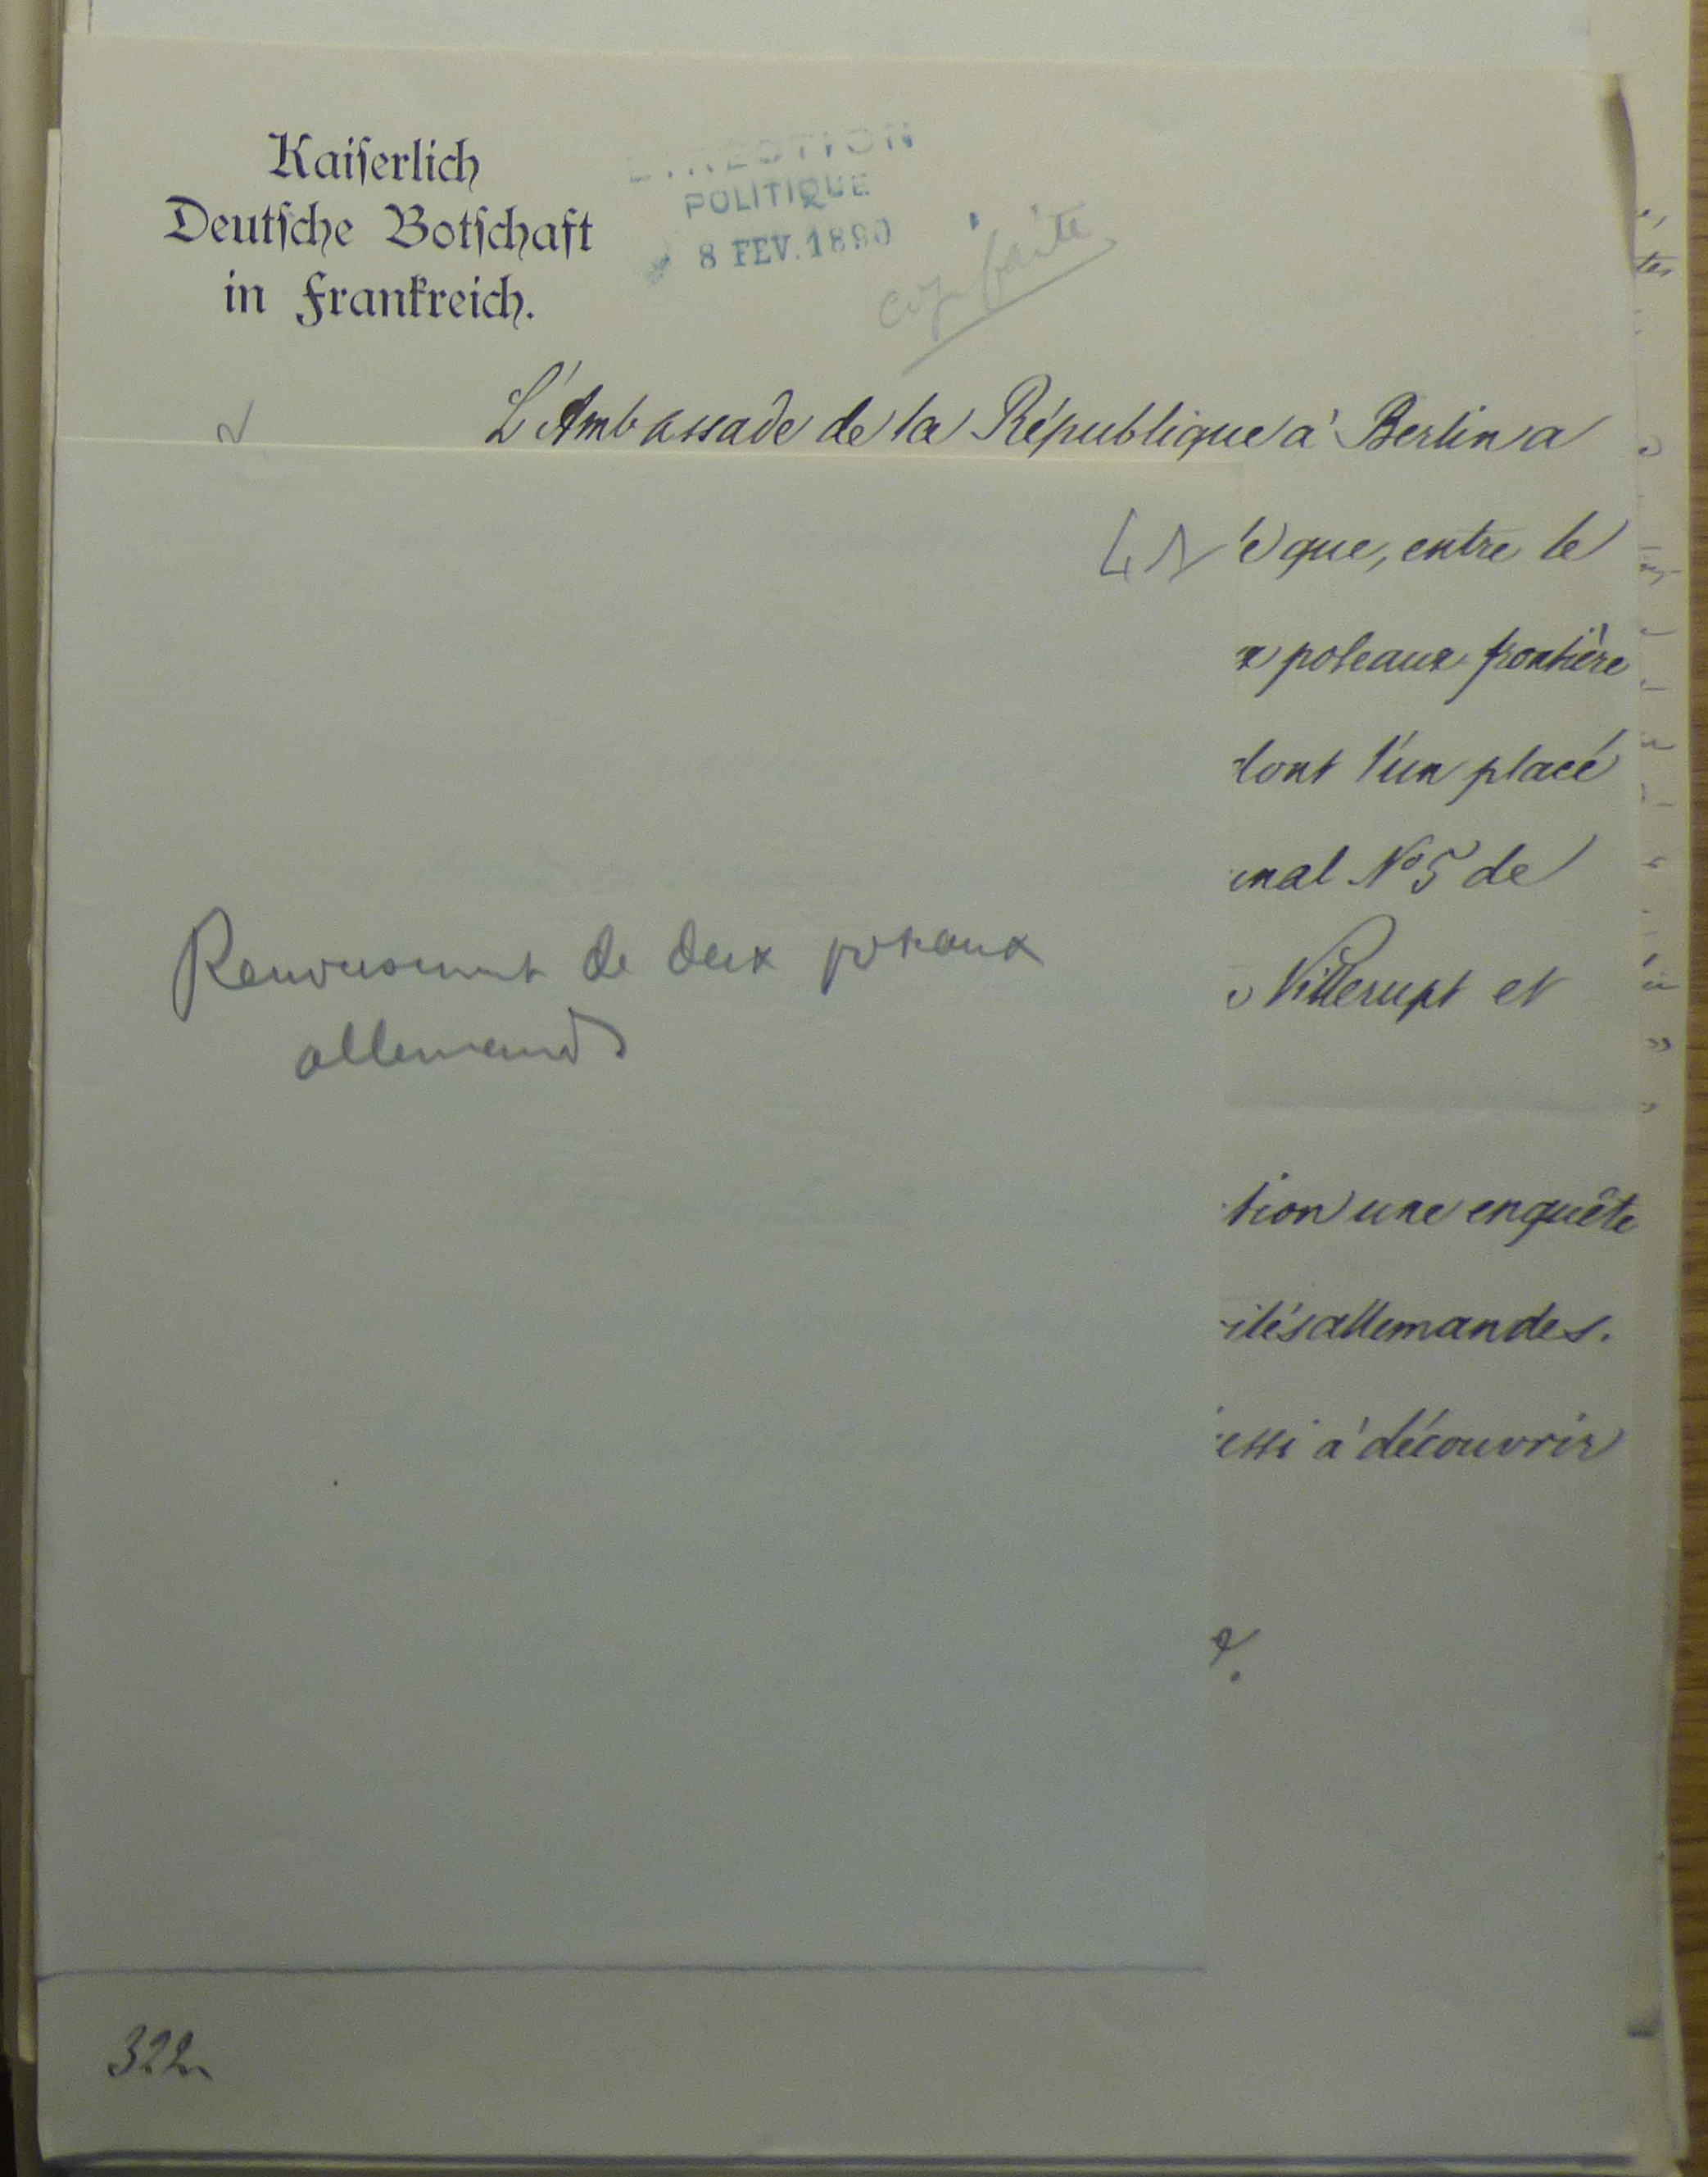 Kaiserlich
Deutsche Botschaft
in Frankreich.
DIRECTION
POLITIQUE
8 FEV. 1890
copie faite
L'Ambassade de la République à Berlin a
é que, entre le
x poteaux frontière
dont l'un placé
nal No 5 de
Villerupt et
tion une enquête
ités allemandes.
ussi à découvrir
Renversement de deux poteaux
allemands
322